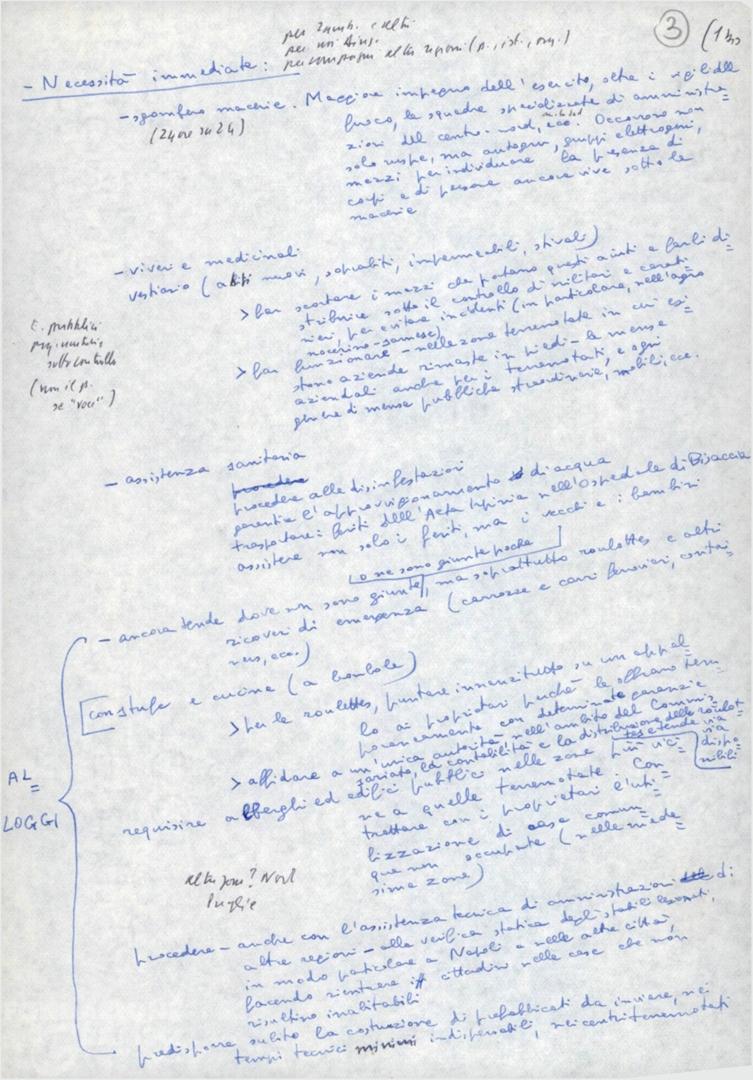 3
- Necessità immediate:
- sgombero macerie. Maggiore impegno dell'esercito, oltre i vigili del
(24 ore su 24)
fuoco, le squadre specializzate di amministra-
zioni del centro-nord, ecc. Occorrono non
solo ruspe, ma autogru, gruppi elettrogeni,
mezzi per individuare la presenza di
corpi e di persone ancora vive sotto le
macerie
- viveri e medicinali
vestiario (abiti nuovi, soprabiti, impermeabili, stivali)
> far scortare i mezzi che portano questi aiuti e farli di-
stribuire sotto il controllo di militari e carabi-
nieri, per evitare incidenti (in particolare, nell'agro
nocerino-sarnese)
> far funzionare - nelle zone terremotate in cui esi-
stono aziende rimaste in piedi - le mense
aziendali anche per i terremotati, e ogni
genere di mense pubbliche straordinarie, mobili, ecc.
E. pubblici
sotto controllo
(non il p.
se "voci")
- assistenza sanitaria
procedere
procedere alle disinfestazioni
garantire l'approvvigionamento di acqua
trasportare i feriti dell'Alta Irpinia nell'Ospedale di Bisaccia
assistere non solo i feriti, ma i vecchi e i bambini
o ne sono giunte poche
- ancora tende dove non sono giunte, ma soprattutto roulottes e altri
ricoveri di emergenza (carrozze e carri ferroviari, contai-
ners, ecc.)
con stufe e cucine (a bombole)
> per le roulottes, puntare innanzitutto su un appel-
lo ai proprietari perché le offrano tem-
poraneamente con determinate garanzie
> affidare a un'unica autorità nell'ambito del Commis-
sariato, la contabilità e la distribuzione delle roulot-
tes e tende via
via dispo-
nibili
AL-
LOGGI
requisire alberghi ed edifici pubblici nelle zone più vici-
ne a quelle terremotate. Con-
trattare con i proprietari l'uti-
lizzazione di case comun-
que non occupate (nelle mede-
sime zone)
altre zone? Nord
Puglie
procedere - anche con l'assistenza tecnica di amministrazioni di
altre regioni - alla verifica statica degli stabili lesionati,
in modo particolare a Napoli e nelle altre città,
facendo rientrare i cittadini nelle case che non
risultino inabitabili
predisporre subito la costruzione di prefabbricati da inviare, nei
tempi tecnici minimi indispensabili, nei centri terremotati